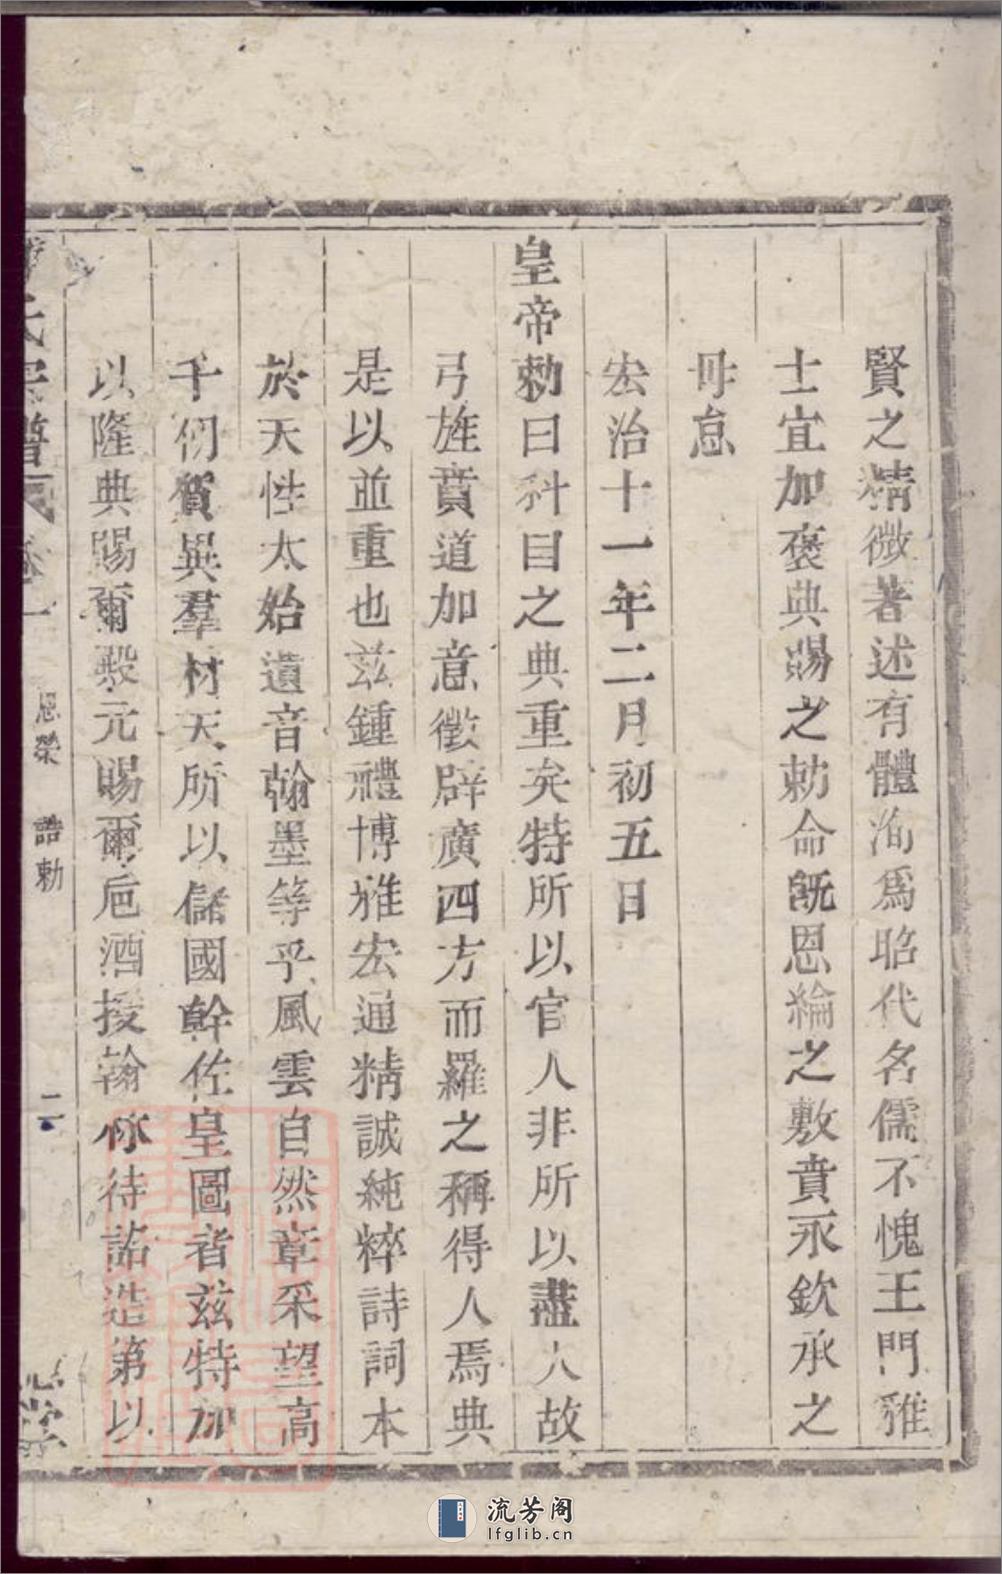 賢之精微著述有體洵爲昭代名儒不愧王門雅
士宜加褒典賜之勅命旣恩綸之敷賁永欽承之
毋怠
宏治十一年二月初五日
皇帝勅曰科目之典重矣特所以官人非所以盡人故
弓旌賁道加意徵辟廣四方而羅之稱得人焉典
是以並重也兹鍾禮博雅宏通精誠純粹詩詞本
於天性太始遺音翰墨等乎風雲自然章采望高
千仞質異羣材天所以儲國幹佐皇圖者兹特加
以隆典賜爾殿元賜爾卮酒授翰林待詔造第以
氏宗譜 卷一 恩榮 誥勅 二 堂
流芳阁
lfglib.cn